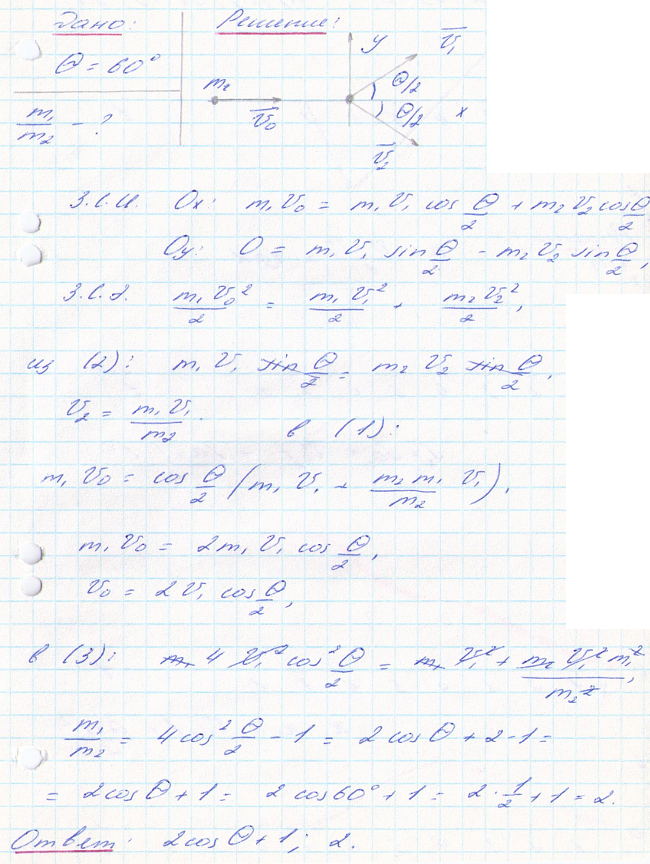 Дано: Решение:
θ = 60°
m₁/m₂ - ?
m₁ v₀ y v₁ θ/2 θ/2 x v₂
З.С.И. Ox: m₁v₀ = m₁v₁ cos θ/2 + m₂v₂ cos θ/2
Oy: 0 = m₁v₁ sin θ/2 - m₂v₂ sin θ/2,
З.С.Э. m₁v₀²/2 = m₁v₁²/2 + m₂v₂²/2,
из (2): m₁v₁ sin θ/2 = m₂v₂ sin θ/2,
v₂ = m₁v₁/m₂. в (1):
m₁v₀ = cos θ/2 (m₁v₁ + m₂m₁/m₂ v₁),
m₁v₀ = 2m₁v₁ cos θ/2,
v₀ = 2v₁ cos θ/2,
в (3): m₁ 4 v₁² cos² θ/2 = m₁v₁² + m₂v₁²m₁²/m₂²,
m₁/m₂ = 4cos² θ/2 - 1 = 2cosθ + 2 - 1 =
= 2cosθ + 1 = 2cos60° + 1 = 2·1/2 + 1 = 2.
Ответ: 2cosθ + 1; 2.